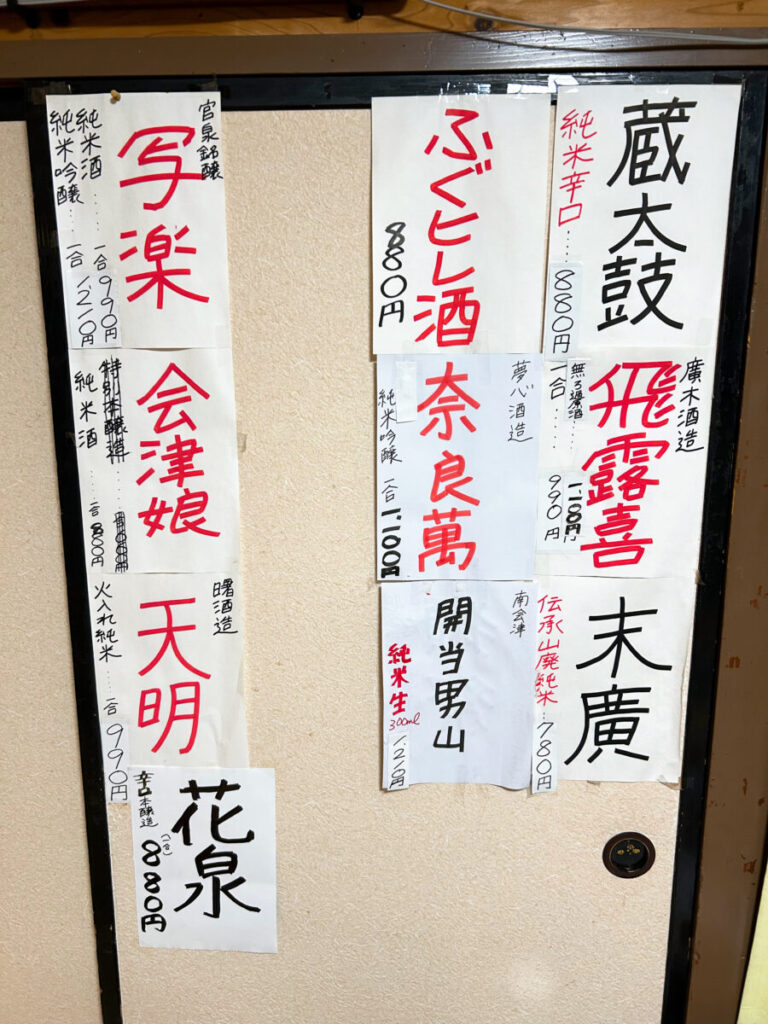 蔵太鼓
純米辛口‥‥‥880円
廣木酒造
飛露喜
無ろ過原酒‥‥1,100円
一合‥‥‥990円
末廣
伝承山廃純米‥‥780円
ふぐヒレ酒
880円
夢心酒造
奈良萬
純米吟醸 一合 1,100円
南会津
開当男山
純米生
300ml
1,210円
宮泉銘醸
写楽
純米酒‥‥‥一合990円
純米吟醸‥‥‥一合1,210円
会津娘
特別本醸造
純米酒‥‥‥一合800円
曙酒造
天明
火入れ純米‥‥‥一合990円
花泉
辛口本醸造
(一合)
880円